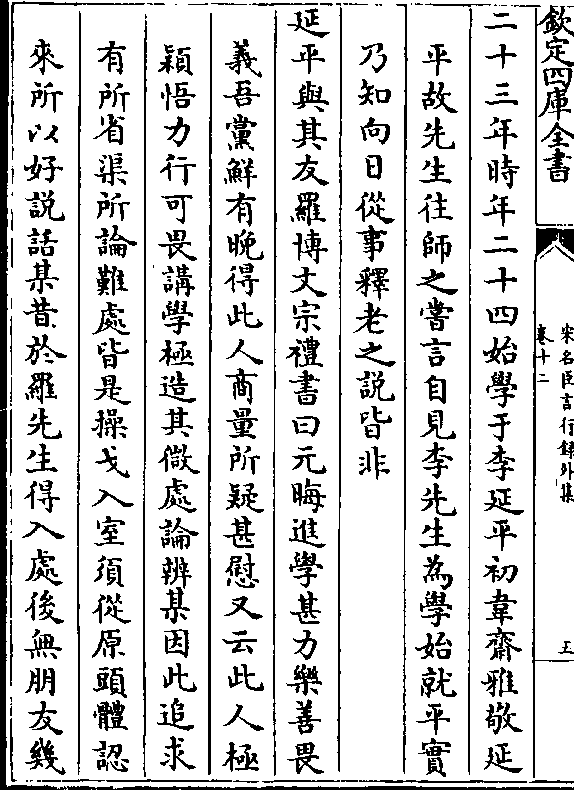 欽定四庫全書
宋名臣言行錄外集
卷十二
五
二十三年時年二十四始學于李延平初韋齋雅敬延
平故先生往師之嘗言自見李先生為學始就平實
乃知向日從事釋老之說皆非
延平與其友羅博文宗禮書曰元晦進學甚力樂善畏
義吾黨鮮有晚得此人商量所疑甚慰又云此人極
穎悟力行可畏講學極造其微處論辨某因此追求
有所省渠所論難處皆是操戈入室須從原頭體認
來所以好說話某昔於羅先生得入處後無朋友幾